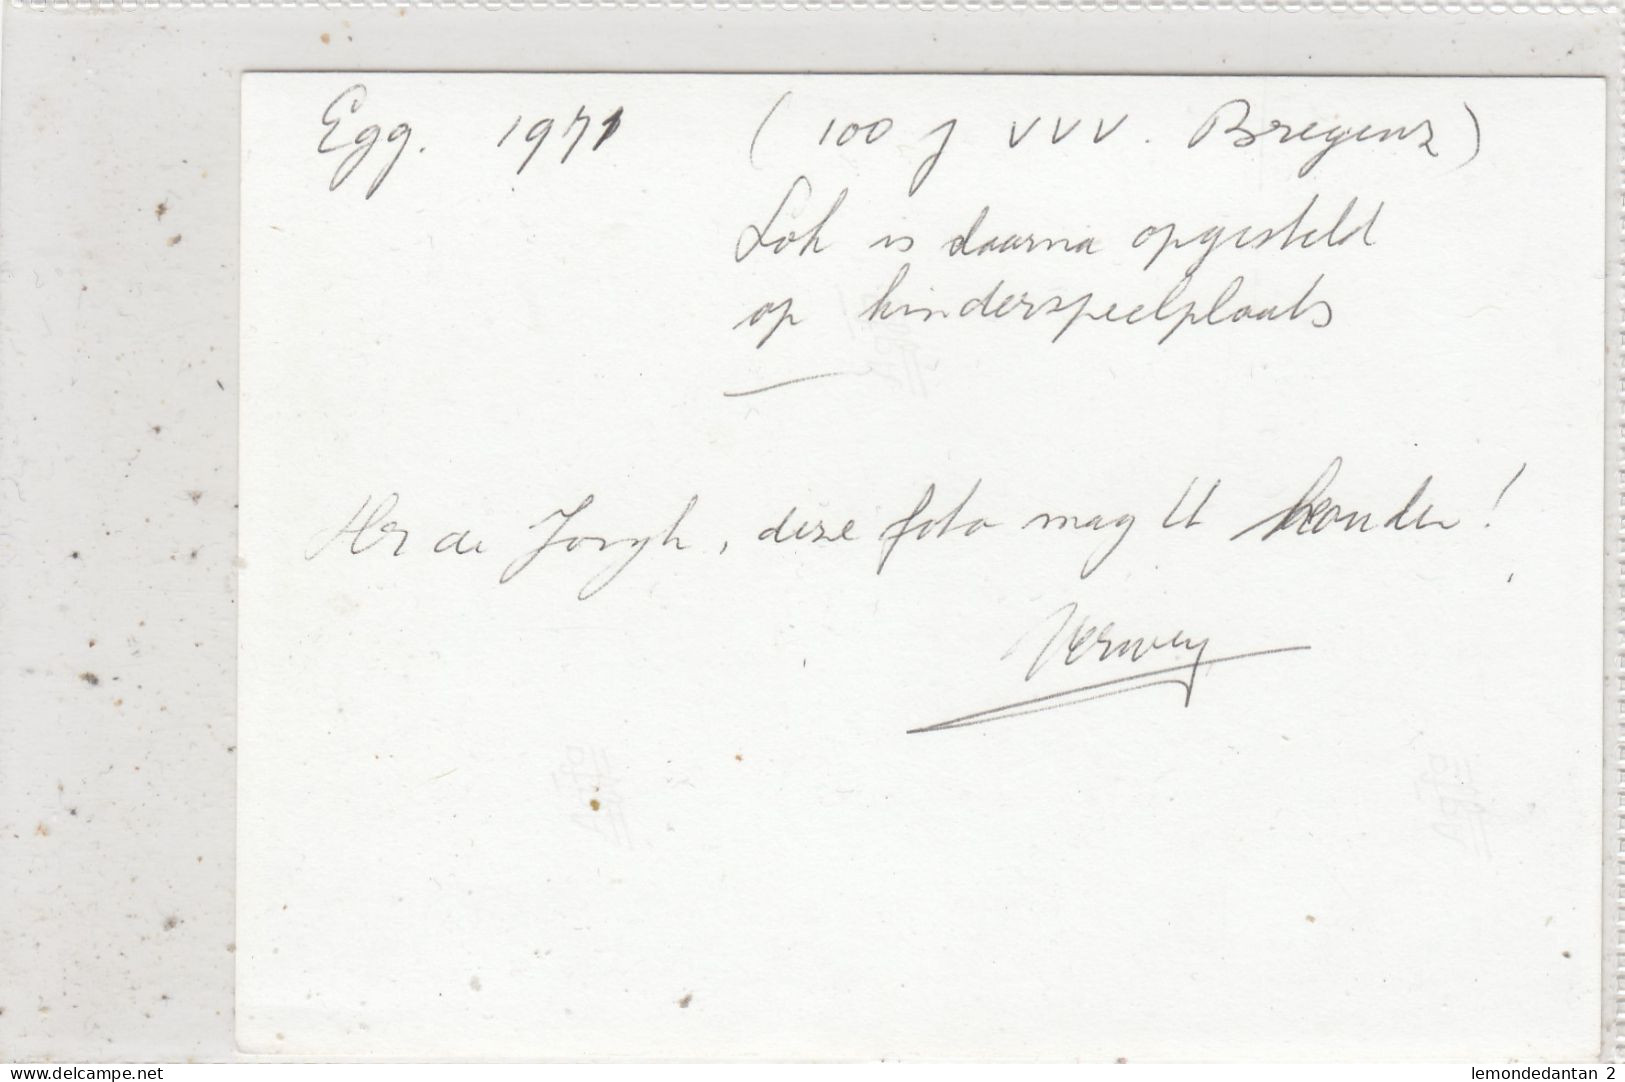 Egg. 1971 (100 j VVV. Bregenz)
Lok is daarna opgesteld
op kinderspeelplaats
Hr de Jongh, deze foto mag U houden!
Verwey
www.delcampe.net
lemondedantan 2